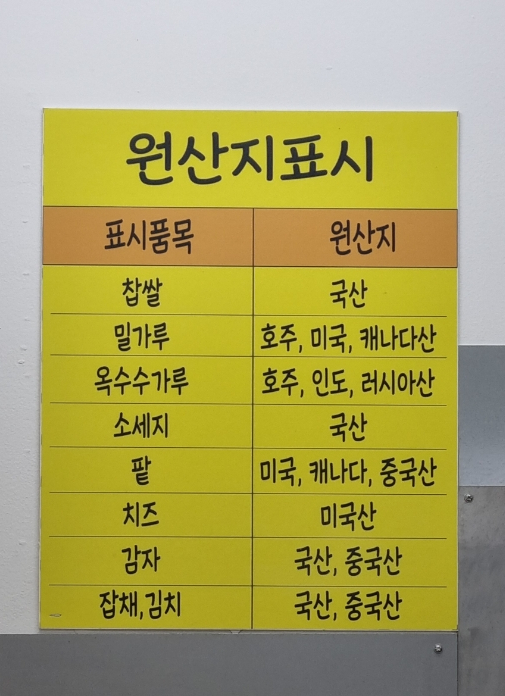 원산지표시
표시품목 원산지
찹쌀 국산
밀가루 호주, 미국, 캐나다산
옥수수가루 호주, 인도, 러시아산
소세지 국산
팥 미국, 캐나다, 중국산
치즈 미국산
감자 국산, 중국산
잡채,김치 국산, 중국산